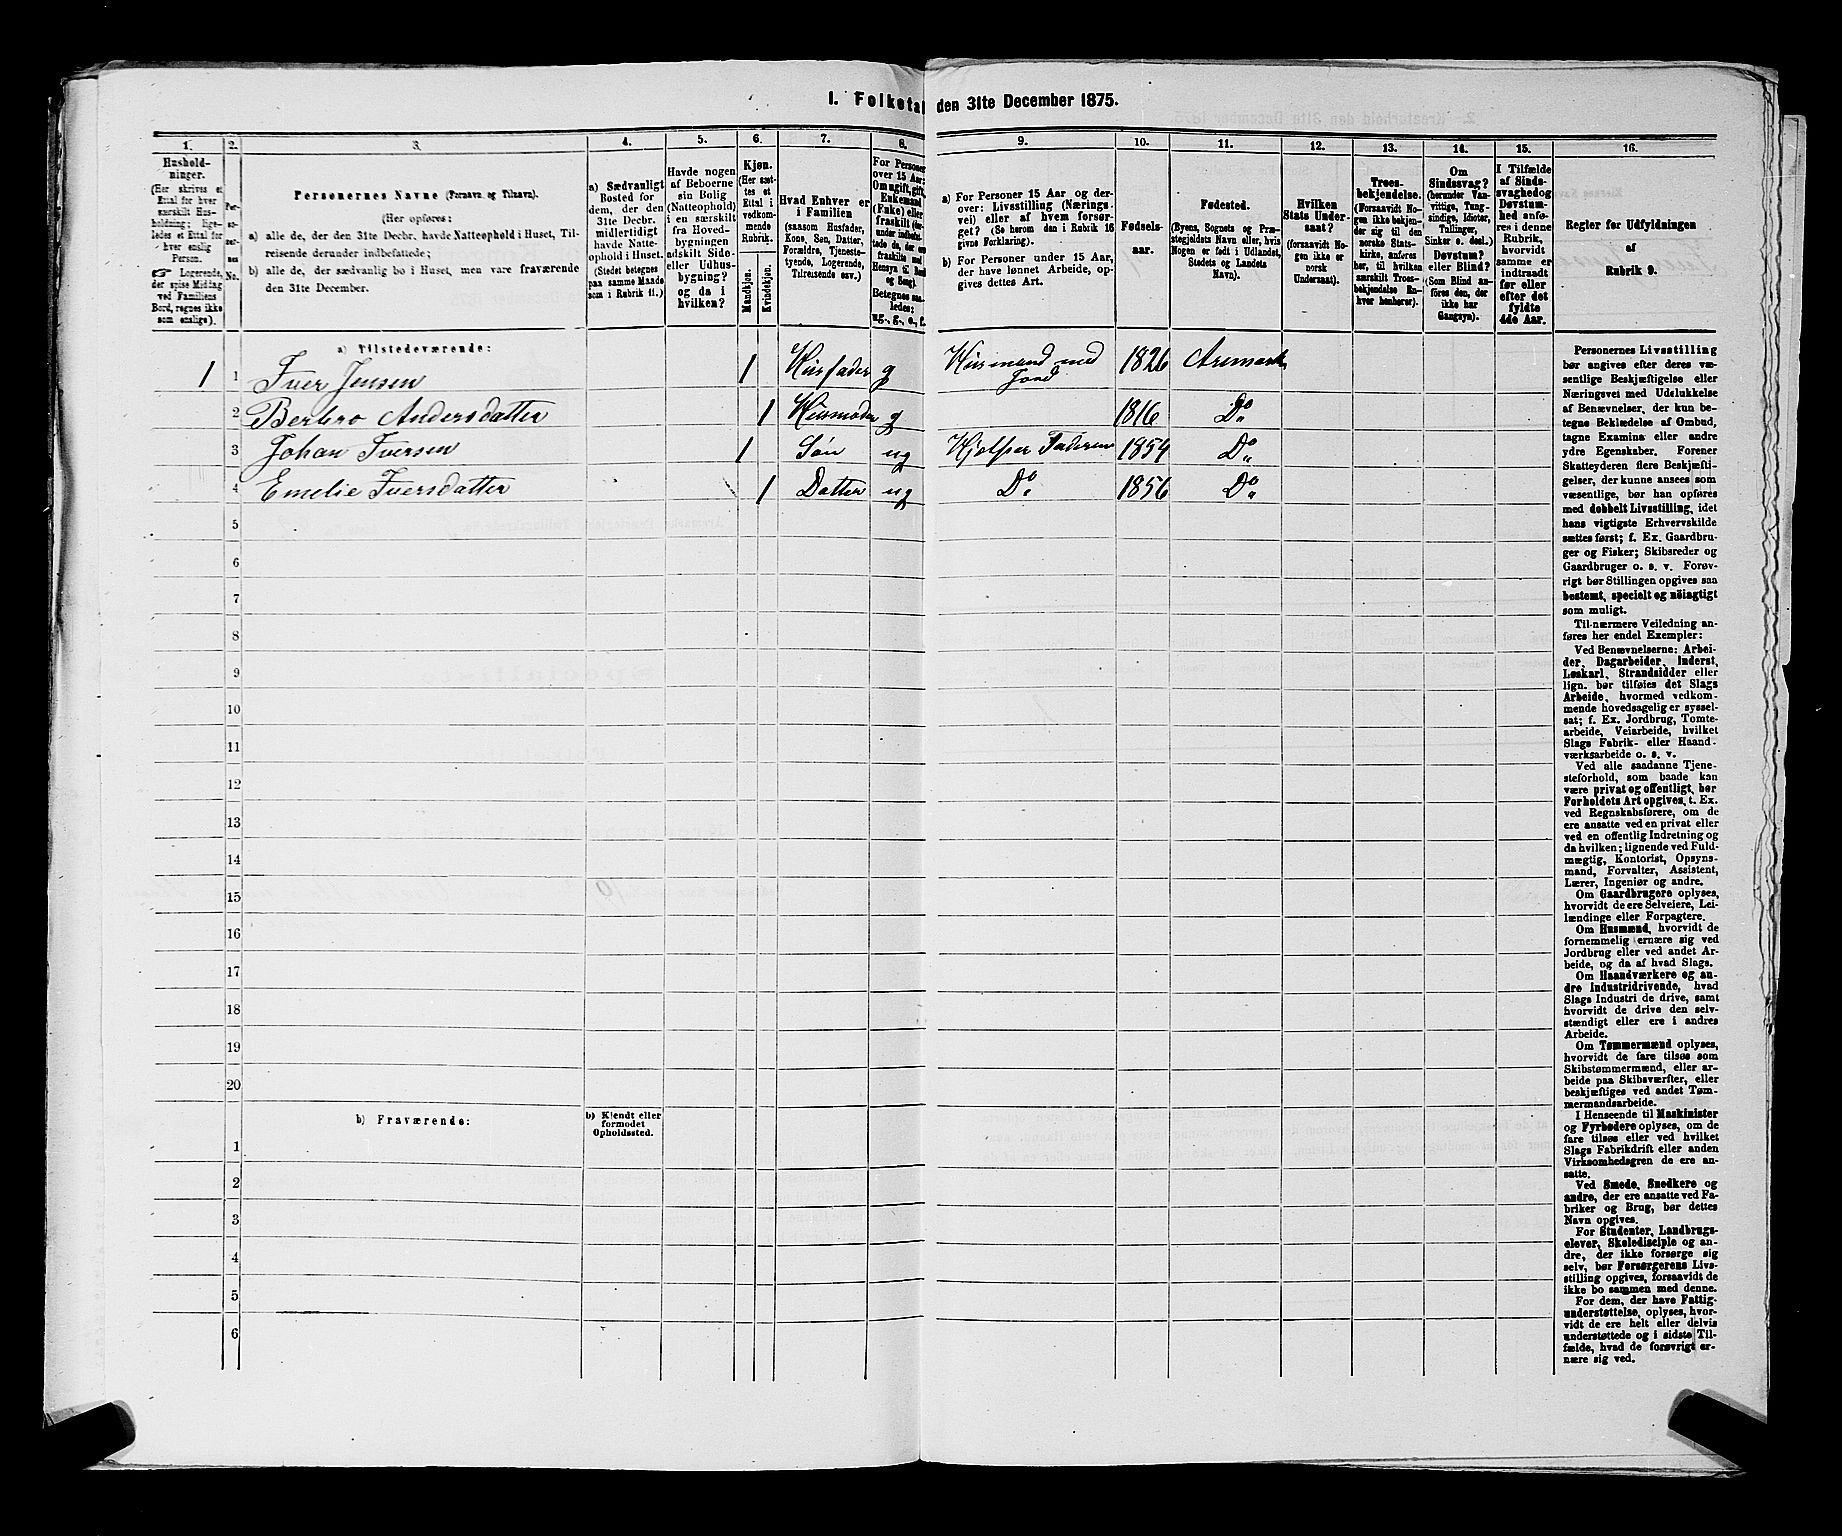 I. Folketal den 31te December 1875.
1. 2. 3. 4. 5. 6. 7. 8. 9. 10. 11. 12. 13. 14. 15. 16.
Hushold-
ninger.
(Her skrives et
Ettal for hver
særskilt Hus-
holdning; lige-
ledes et Ettal for
hver enslig
Person.
☞ Logerende,
der spise Middag
ved Familiens
Bord, regnes ikke
som enslige).
Per-
so-
ner-
nes
No.
Personernes Navne (Fornavn og Tilnavn).
(Her opføres:
a) alle de, der den 31te Decbr. havde Natteophold i Huset, Til-
reisende derunder indbefattede;
b) alle de, der sædvanlig bo i Huset, men vare fraværende
den 31te December.
a) Sædvanligt
Bosted for
dem, der den
31te Decbr.
midlertidigt
havde Natte-
ophold i Huset.
(Stedet betegnes
paa samme Maade
som i Rubrik 11.)
Havde nogen
af Beboerne
sin Bolig
(Natteophold)
i en særskilt
fra Hoved-
bygningen
adskilt Side-
eller Udhus-
bygning?
og da i
hvilken?
Kjøn.
(Her sæt-
tes et
Ettal i
vedkom-
mende
Rubrik.
Mandkjøn.
Kvindekjøn.
Hvad Enhver er
i Familien
(saasom Husfader,
Kone, Søn, Datter,
Forældre, Tjeneste-
tyende, Logerende,
Tilreisende osv.)
For Personer
over 15 Aar:
Om ugift, gift,
Enkemand
(Enke) eller
fraskilt
Betegnes saa-
ledes:
ug., g., e., f.
a) For Personer 15 Aar og der-
over: Livsstilling (Nærings-
vei) eller af hvem forsør-
get? (Se herom den i Rubrik 16
givne Forklaring).
b) For Personer under 15 Aar,
der have lønnet Arbeide, op-
gives dettes Art.
Fødsels-
aar.
Fødested.
(Byens, Sognets og Præ-
stegjeldets Navn eller, hvis
Nogen er født i Udlandet,
Stedets og Landets
Navn).
Hvilken
Stats Under-
saat?
(forsaavidt No-
gen ikke er
norsk
Undersaat).
Troes-
bekjendelse.
(Forsaavidt No-
gen ikke bekjen-
der sig til den
norske Stats-
kirke, anføres
her, til hvilken
særskilt Troes-
bekjendelse En-
hver henhører).
Om
Sindssvag?
(herunder Van-
vittige, Tung-
sindige, Idioter,
Tullinger,
Sinker o. desl.)
Døvstum?
eller Blind?
(Som Blind an-
føres den, der
ikke har
Gangsyn).
I Tilfælde
af Sinds-
svaghed og
Døvstum-
hed anfø-
res i denne
Rubrik,
hvorvidt
samme er
indtraadt
før eller
efter det
fyldte
4de Aar.
Regler for Udfyldningen
af
Rubrik 9.
a) Tilstedeværende:
1 1 Iver Jensen 1 Husfader g Husmand med Jord 1826 Aremark
2 Berbro Andersdatter 1 Husmoder g 1816 Do
3 Johan Iversen 1 Søn ug Hjelper Faderen 1854 Do
4 Emelie Iversdatter 1 Datter ug Do 1856 Do
5
6
7
8
9
10
11
12
13
14
15
16
17
18
19
20
b) Fraværende:
b) Kjendt eller
formodet
Opholdssted.
1
2
3
4
5
6
Personernes Livsstilling
bør angives efter deres væ-
sentlige Beskjæftigelse eller
Næringsvei med Udelukkelse
af Benævnelser, der kun be-
tegne Beklædelse af Ombud,
tagne Examina eller andre
ydre Egenskaber. Forener
Skatteyderen flere Beskjæfti-
gelser, der kunne ansees som
væsentlige, bør han opføres
med dobbelt Livsstilling, idet
hans vigtigste Erhvervskilde
sættes først; f. Ex. Gaardbru-
ger og Fisker; Skibsreder og
Gaardbruger o. s. v. Forøv-
rigt bør Stillingen opgives saa
bestemt, specielt og nöiagtigt
som muligt.
Til nærmere Veiledning an-
føres her endel Exempler:
Ved Benævnelserne: Arbei-
der, Dagarbeider, Inderst,
Løskarl, Strandsidder eller
lign. bør tilføies det Slags
Arbeide, hvormed vedkom-
mende hovedsagelig er syssel-
sat; f. Ex. Jordbrug, Tomte-
arbeide, Veiarbeide, hvilket
Slags Fabrik- eller Haand-
værksarbeide o. s. v.
Ved alle saadanne Tjene-
steforhold, som baade kan
være privat og offentligt, bør
Forholdets Art opgives, t. Ex.
ved Regnskabsførere, om de
ere ansatte ved en privat eller
ved en offentlig Indretning og
da hvilken; lignende ved Fuld-
mægtig, Kontorist, Opsyns-
mand, Forvalter, Assistent,
Lærer, Ingeniør og andre.
Om Gaardbrugere oplyses,
hvorvidt de ere Selveiere, Lei-
lændinge eller Forpagtere.
Om Husmænd, hvorvidt de
fornemmelig ernære sig ved
Jordbrug eller ved andet Ar-
beide, og da af hvad Slags.
Om Haandværkere og an-
dre Industridrivende, hvad
Slags Industri de drive, samt
hvorvidt de drive den selv-
stændigt eller ere i andres
Arbeide.
Om Tømmermænd oplyses,
hvorvidt de fare tilsøs som
Skibstømmermænd, eller ar-
beide paa Skibsværfter, eller
beskjæftiges ved andet Tøm-
mermandsarbeide.
I Henseende til Maskinister
og Fyrbødere oplyses, om de
fare tilsøs eller ved hvilket
Slags Fabrikdrift eller anden
Virksomhedsgren de ere an-
satte.
Ved Smede, Snedkere og
andre, der ere ansatte ved Fa-
briker og Brug, bør dettes
Navn opgives.
For Studenter, Landbrugs-
elever, Skoledisciple og an-
dre, der ikke forsørge sig
selv, bør Forsørgerens Livs-
stilling opgives, forsaavidt de
ikke bo sammen med denne.
For dem, der have Fattig-
understøttelse, oplyses, hvor-
vidt de ere helt eller delvis
understøttede og i sidste Til-
fælde, hvad de forøvrigt er-
nære sig ved.